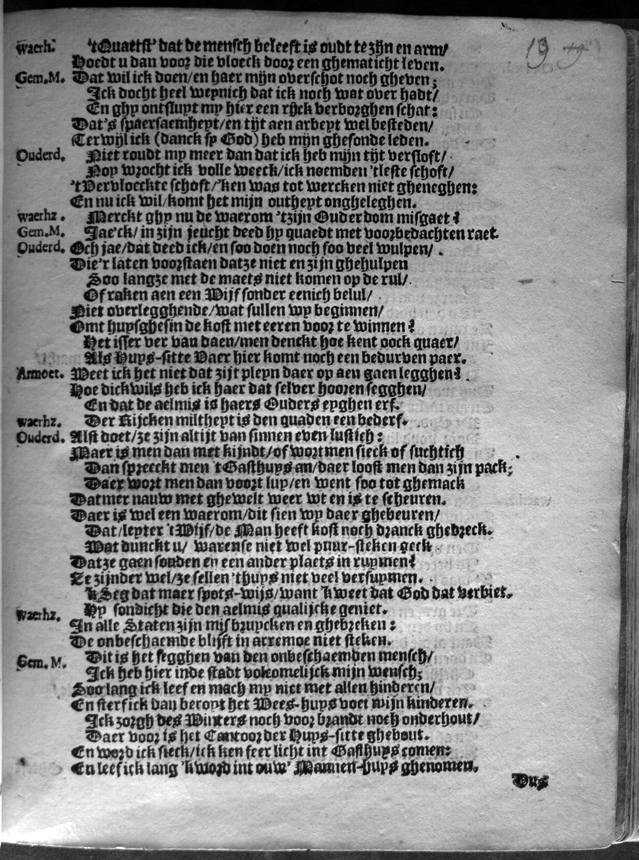 19 49
waerh. 'tQuaetst' dat de mensch beleeft is oudt te zijn en arm/
Hoedt u dan voor die vloeck door een ghematicht leven.
Gem.M. Dat wil ick doen/en haer mijn overschot noch gheven;
Ick docht heel weynich dat ick noch wat over hadt/
En ghy ontsluyt my hier een rijck verborghen schat:
Dat's spaersaemheyt/en tijt aen arbeyt wel besteden/
Terwijl ick (danck sy God) heb mijn ghesonde leden.
Ouderd. Niet roudt my meer dan dat ick heb mijn tijt versloft/
Noy wrocht ick volle weeck/ick noemden 'tleste schoft/
'tVervloeckte schoft/'ken was tot wercken niet gheneghen:
En nu ick wil/komt het mijn outheyt ongheleghen.
waerhz. Merckt ghy nu de waerom 'tzijn Ouderdom misgaet?
Gem.M. Jae'ck/in zijn jeucht deed hy quaedt met voorbedachten raet.
Ouderd. Och jae/dat deed ick/en soo doen noch soo veel wulpen/
Die'r laten voorstaen datze niet en zijn ghehulpen
Soo langze met de maets niet komen op de rul/
Of raken aen een Wijf sonder eenich belul/
Niet overlegghende/wat sullen wy beginnen/
Omt huysghesin de kost met eeren voor te winnen?
Het isser ver van daen/men denckt hoe kent oock quaer/
Als Huys-sitte Vaer hier komt noch een bedurven paer.
Armoet. Weet ick het niet dat zijt pleyn daer op aen gaen legghen?
Hoe dickwils heb ick haer dat selver hooren segghen/
En dat de aelmis is haers Ouders eyghen erf.
waerhz. Der Rijcken miltheyt is den quaden een bederf.
Ouderd. Alst doet/ze zijn altijt van sinnen even lustich:
Maer is men dan met kijndt/of wort men sieck of suchtich
Dan spreeckt men 't Gasthuys an/daer loost men dan zijn pack;
Daer wort men dan voort luy/en went soo tot ghemack
Datmer nauw met ghewelt weer wt en is te scheuren.
Daer is wel een waerom/dit sien wy daer ghebeuren/
Dat/leyter 't Wijf/de Man heeft kost noch dranck ghebreck.
Wat dunckt u/ warense niet wel puur-steken geck
Datze gaen souden en een ander plaets in ruymen?
Ze zijnder wel/ze sellen 'thuys niet veel versuymen.
'k Seg dat maer spots-wijs/want 'k weet dat God dat verbiet.
Hy sondicht die den aelmis qualijcke geniet.
Waerhz. In alle Staten zijn misbruycken en ghebreken:
De onbeschaemde blijft in arremoe niet steken.
Gem. M. Dit is het segghen van den onbeschaemden mensch/
Ick heb hier inde stadt volcomelijck mijn wensch;
Soo lang ick leef en mach my niet met allen hinderen/
En sterf ick dan beroyt het Wees-huys voet mijn kinderen.
Ick zorgh des Winters noch voor brandt noch onderhout/
Daer voor is het Cantoor der Huys-sitte ghebout.
En word ick sieck/ick ken seer licht int Gasthuys comen:
En leef ick lang 'k word int ouw' Mannen-huys ghenomen.
Dus